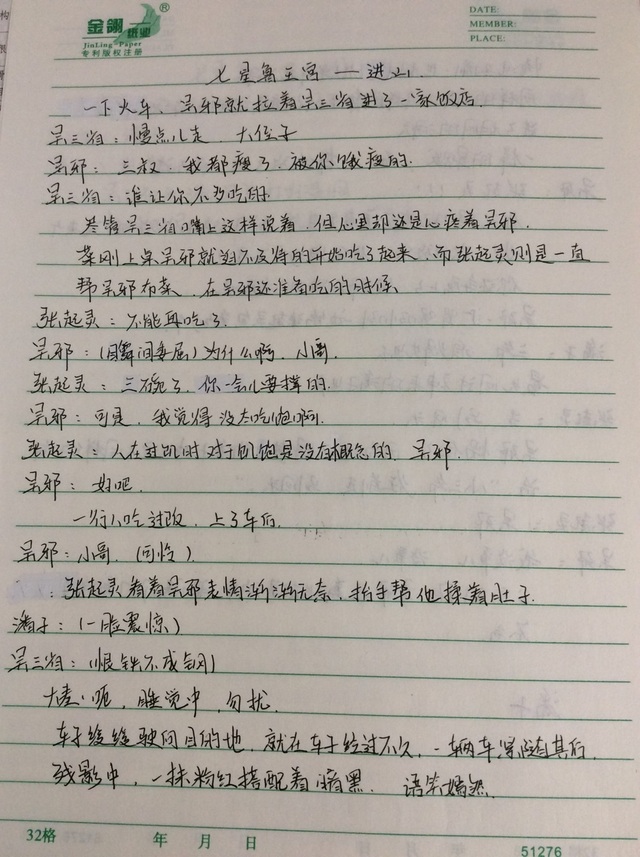 金翎纸业®
JinLing-Paper
专利版权注册
DATE:
MEMBER:
PLACE:
七星鲁王宫——进山.
一下火车、吴邪就拉着吴三省到了一家饭店.
吴三省：慢点儿走，大侄子
吴邪：三叔，我都瘦了，被你饿瘦的.
吴三省：谁让你不多吃的.
尽管吴三省嘴上这样说着，但心里却还是心疼着吴邪.
菜刚上桌吴邪就迫不及待的开始吃了起来，而张起灵则是一直
帮吴邪布菜，在吴邪还准备吃的时候
张起灵：不能再吃了.
吴邪：（瞬间委屈）为什么啊，小哥.
张起灵：三碗了，你一会儿要撑的.
吴邪：可是，我觉得没太吃饱啊.
张起灵：人在过饥时对于饥饱是没有概念的，吴邪.
吴邪：好吧.
一行人吃过饭，上了车后.
吴邪：小哥.（可怜）
：张起灵看着吴邪表情渐渐无奈，抬手帮他揉着肚子.
潘子：（一脸震惊）
吴三省：（恨铁不成钢）
大奎：呃，睡觉中，勿扰.
车子缓缓驶向目的地，就在车子经过不久，一辆车深随其后.
残影中，一抹粉红搭配着暗黑. 语笑嫣然.
32格
年 月 日
51276